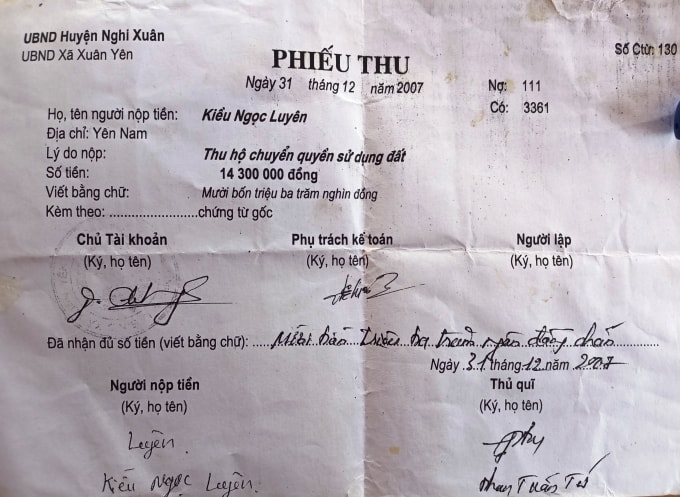 UBND Huyện Nghi Xuân
UBND Xã Xuân Yên
Số Ctừ: 130
PHIẾU THU
Ngày 31 tháng 12 năm 2007
Nợ: 111
Có: 3361
Họ, tên người nộp tiền: Kiều Ngọc Luyên
Địa chỉ: Yên Nam
Lý do nộp: Thu hộ chuyển quyền sử dụng đất
Số tiền: 14 300 000 đồng
Viết bằng chữ: Mười bốn triệu ba trăm nghìn đồng
Kèm theo: ......................chứng từ gốc
Chủ Tài khoản Phụ trách kế toán Người lập
(Ký, họ tên) (Ký, họ tên) (Ký, họ tên)
Đã nhận đủ số tiền (viết bằng chữ): Mười bốn triệu ba trăm ngàn đồng chẵn
Ngày 31 tháng 12 năm 2007
Người nộp tiền Thủ quĩ
(Ký, họ tên) (Ký, họ tên)
Luyên
Kiều Ngọc Luyên
Phan Tuấn Tú